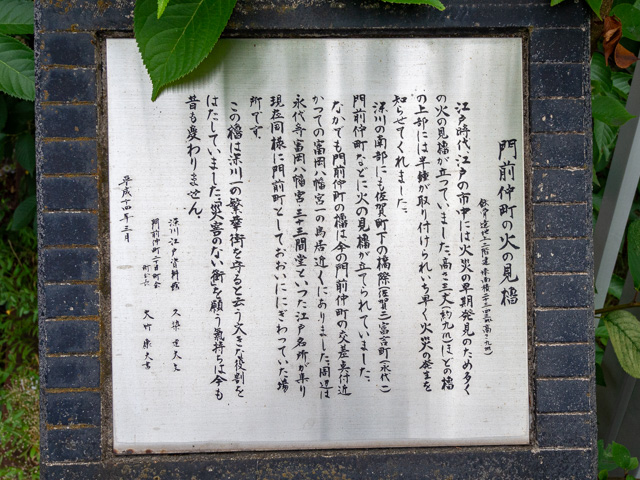 門前仲町の火の見櫓
江戸時代、江戸の市中には火災の早期発見のため多く
の火の見櫓が立っていました。高さ三丈(約九m)ほどの櫓
の上部には半鐘が取り付けられ、いち早く火災の発生を
知らせてくれました。
深川の南部にも佐賀町下の橋際(佐賀二)、冨吉町(永代一)
門前仲町などに火の見櫓が立てられていました。
なかでも門前仲町の櫓は今の門前仲町の交差点付近
かつての富岡八幡宮一の鳥居近くにありました。周辺は
永代寺・富岡八幡宮・三十三間堂といった江戸名所が集り
現在同様に門前町としておおいににぎわっていた場
所です。
この櫓は深川一の繁華街を守ると云う大きな役割を
はたしていました。「災害のない街」を願う気持ちは今も
昔も変わりません。
平成十四年三月
深川江戸資料館
門前仲町二丁目町会
町会長